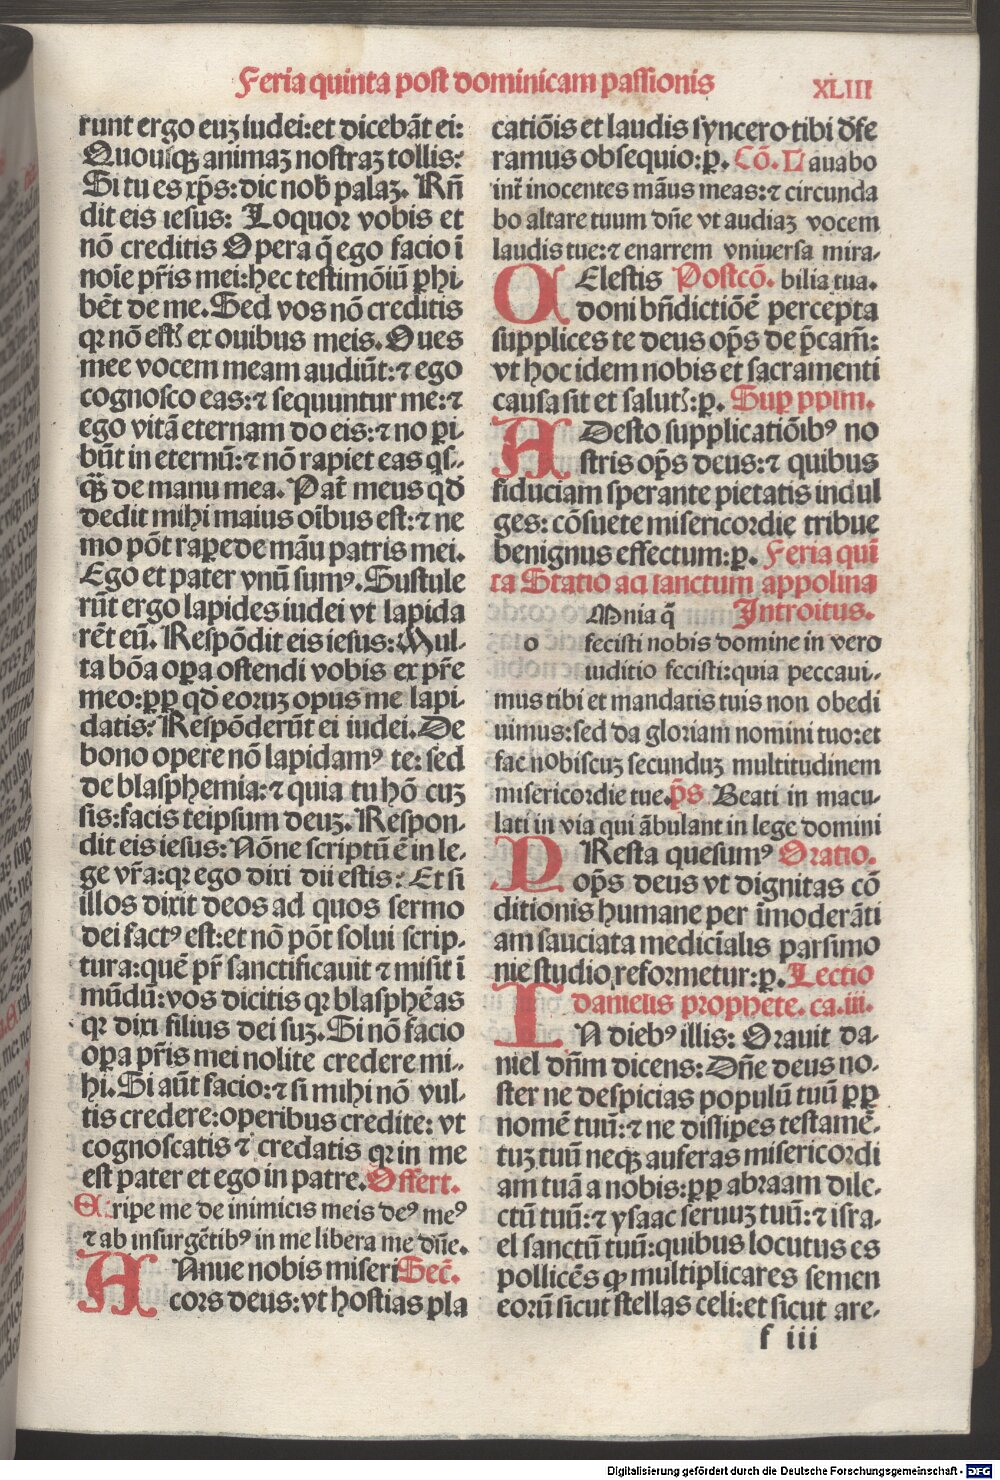 Feria quinta post dominicam passionis
XLIII
runt ergo euꝫ iudei:et dicebāt ei:
Quousqꝫ animaꝫ nostraꝫ tollis:
Si tu es xp̄s: dic nob̄ palaꝫ. Rn̄
dit eis iesus: Loquor vobis et
nō creditis Opera q̄ ego facio ī
noīe pr̄is mei:hec testimōiū ꝑhi
bēt de me. Sed vos nō creditis
qꝛ nō estꝭ ex ouibus meis. Oues
mee vocem meam audiūt:⁊ ego
cognosco eas:⁊ sequuntur me:⁊
ego vitā eternam do eis:⁊ no ꝑi
būt in eternū:⁊ nō rapiet eas qs̄-
qꝫ de manu mea. Pat̄ meus qd̄
dedit mihi maius oībus est:⁊ ne
mo pōt raꝑe de māu patris mei.
Ego et pater vnū sumꝰ. Sustule
rūt ergo lapides iudei vt lapida
rēt eū. Respōdit eis iesus: Mul-
ta bōa oꝑa ostendi vobis ex pr̄e
meo:ꝓꝑ qd̄ eoruꝫ opus me lapi-
datis: Respōderūt ei iudei. De
bono opere nō lapidamꝰ te: sed
de blasphemia:⁊ quia tu hō cuꝫ
sis:facis teipsum deuꝫ. Respon-
dit eis iesus: Nōne scriptū ē in le-
ge vr̄a:qꝛ ego dixi dii estis: Et si
illos dixit deos ad quos sermo
dei factꝰ est:et nō pōt solui scrip-
tura:quē pr̄ sanctificauit ⁊ misit ī
mūdū:vos dicitis qꝛ blasphēas
qꝛ dixi filius dei suꝫ. Si nō facio
oꝑa pr̄is mei nolite credere mi-
hi. Si aūt facio:⁊ si mihi nō vul-
tis credere:operibus credite: vt
cognoscatis ⁊ credatis qꝛ in me
est pater et ego in patre. Offert.
Eripe me de inimicis meis deꝰ meꝰ
⁊ ab insurgētibꝰ in me libera me dn̄e.
Annue nobis miseri Sec̄.
cors deus: vt hostias pla
catiōis et laudis syncero tibi dr̄e
ramus obsequio:ꝑ. Cō. Lauabo
int̄ inocentes māus meas:⁊ circunda
bo altare tuum dn̄e vt audiaꝫ vocem
laudis tue:⁊ enarrem vniuersa mira-
Celestis Postcō. bilia tua.
doni bn̄dictiōē percepta
supplices te deus op̄s de p̄cam̄:
vt hoc idem nobis et sacramenti
causa sit et salutꝭ:ꝑ. Sup pplm.
Adesto supplicatiōibꝰ no
stris op̄s deus:⁊ quibus
fiduciam sperante pietatis indul
ges: cōsuete misericordie tribue
benignus effectum:ꝑ. Feria quī
ta Statio ad sanctum appolina
Mnia q̄ Introitus.
o fecisti nobis domine in vero
iuditio fecisti:quia peccaui-
mus tibi et mandatis tuis non obedi
uimus:sed da gloriam nomini tuo:et
fac nobiscuꝫ secunduꝫ multitudinem
misericordie tue. p̄s Beati in macu-
lati in via qui ābulant in lege domini
PResta quesumꝰ Oratio.
op̄s deus vt dignitas cō
ditionis humane per īmoderāti
am sauciata medicīalis parsimo
nie studio reformetur:ꝑ. Lectio
danielis prophete. ca.iii.
IN diebꝰ illis: Orauit da-
niel dn̄m dicens: Dn̄e deus no-
ster ne despicias populū tuū ꝓꝑ
nomē tuū:⁊ ne dissipes testamē-
tuꝫ tuū neqꝫ auferas misericordi
am tuā a nobis:ꝓꝑ abraam dile-
ctū tuū:⁊ ysaac seruuꝫ tuū:⁊ isra-
el sanctū tuū:quibus locutus es
pollicēs ꝙ multiplicares semen
eorū sicut stellas celi:et sicut are-
f iii
Digitalisierung gefördert durch die Deutsche Forschungsgemeinschaft - DFG